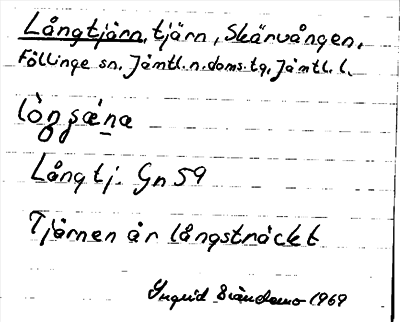 Långtjärn, tjärn, Skärvången,
Föllinge sn, Jämtl.n.doms.tg, Jämtl. l.
Långtj. Gn 59
Tjärnen är långsträckt
Ingrid 1969